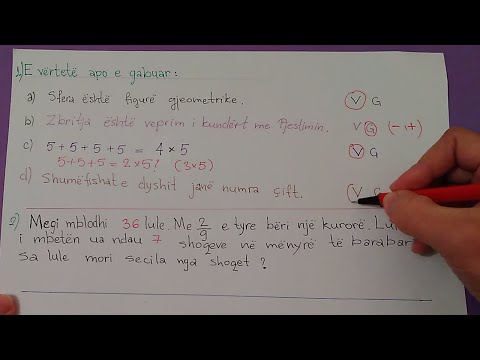 1) E vërtetë apo e gabuar:
a) Sfera është figurë gjeometrike. V G
b) Zbritja është veprim i kundërt me Pjestimin. V G (-,+)
c) 5+5+5+5 = 4 × 5 V G
5+5+5 = 2×5? (3×5)
d) Shumëfishat e dyshit janë numra çift. V G
2) Megi mblodhi 36 lule. Me 2/9 e tyre bëri një kurorë.
i mbetën ua ndau 7 shoqeve në mënyrë të barabar
sa lule mori secila nga shoqet?